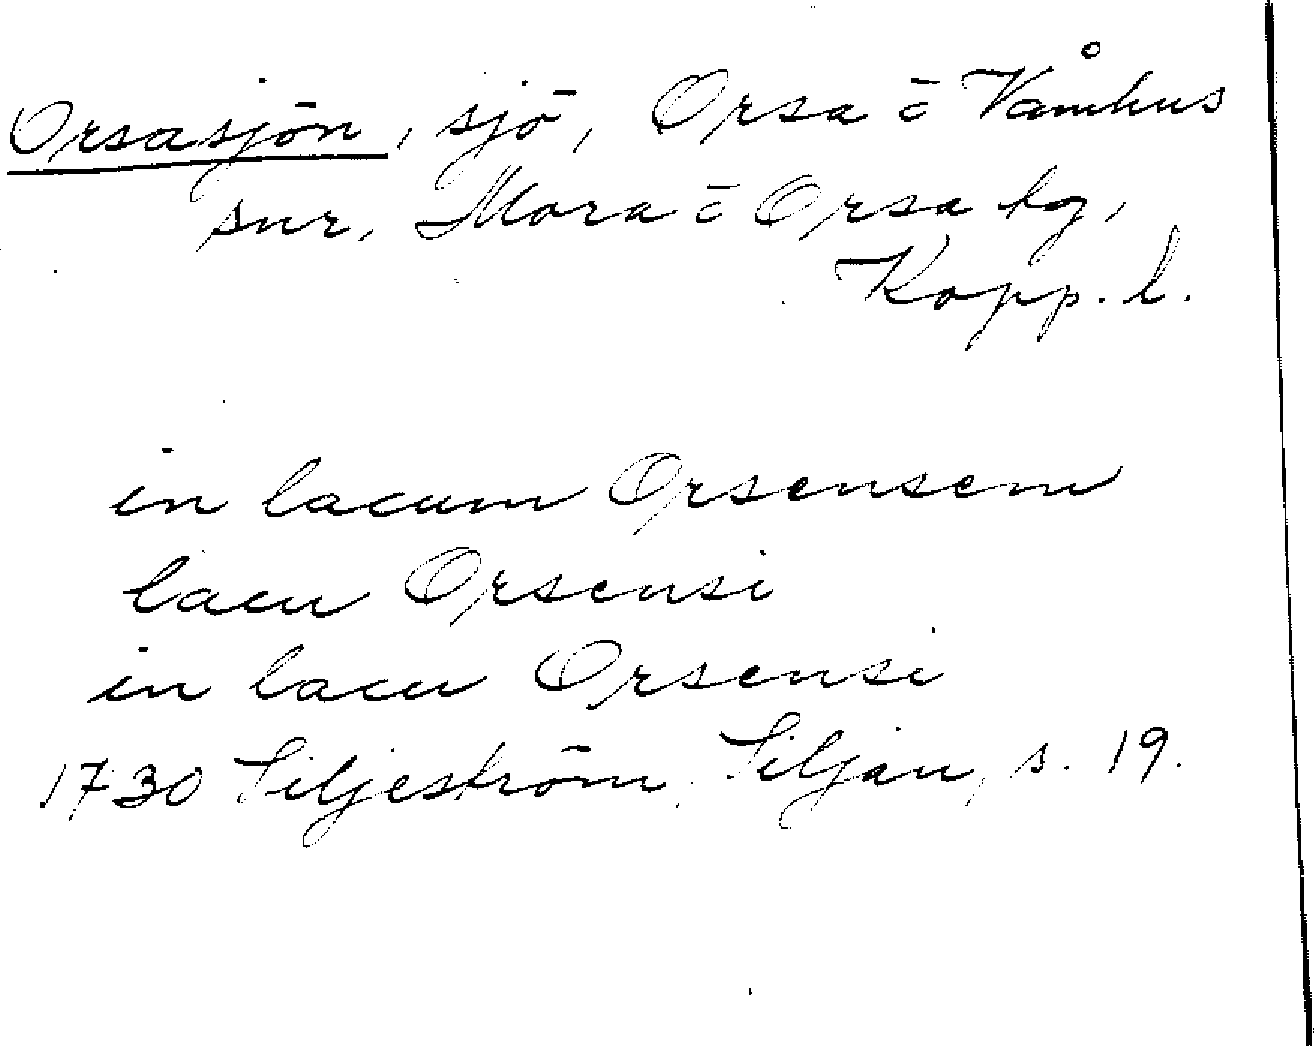 Orsasjön, sjö, Orsa o Våmhus
snr, Mora o Orsa tg,
Kopp. l.
in lacum Orsensem
lacu Orsensi
in lacu Orsensi
1730 Siljeström, Siljan, s. 19.